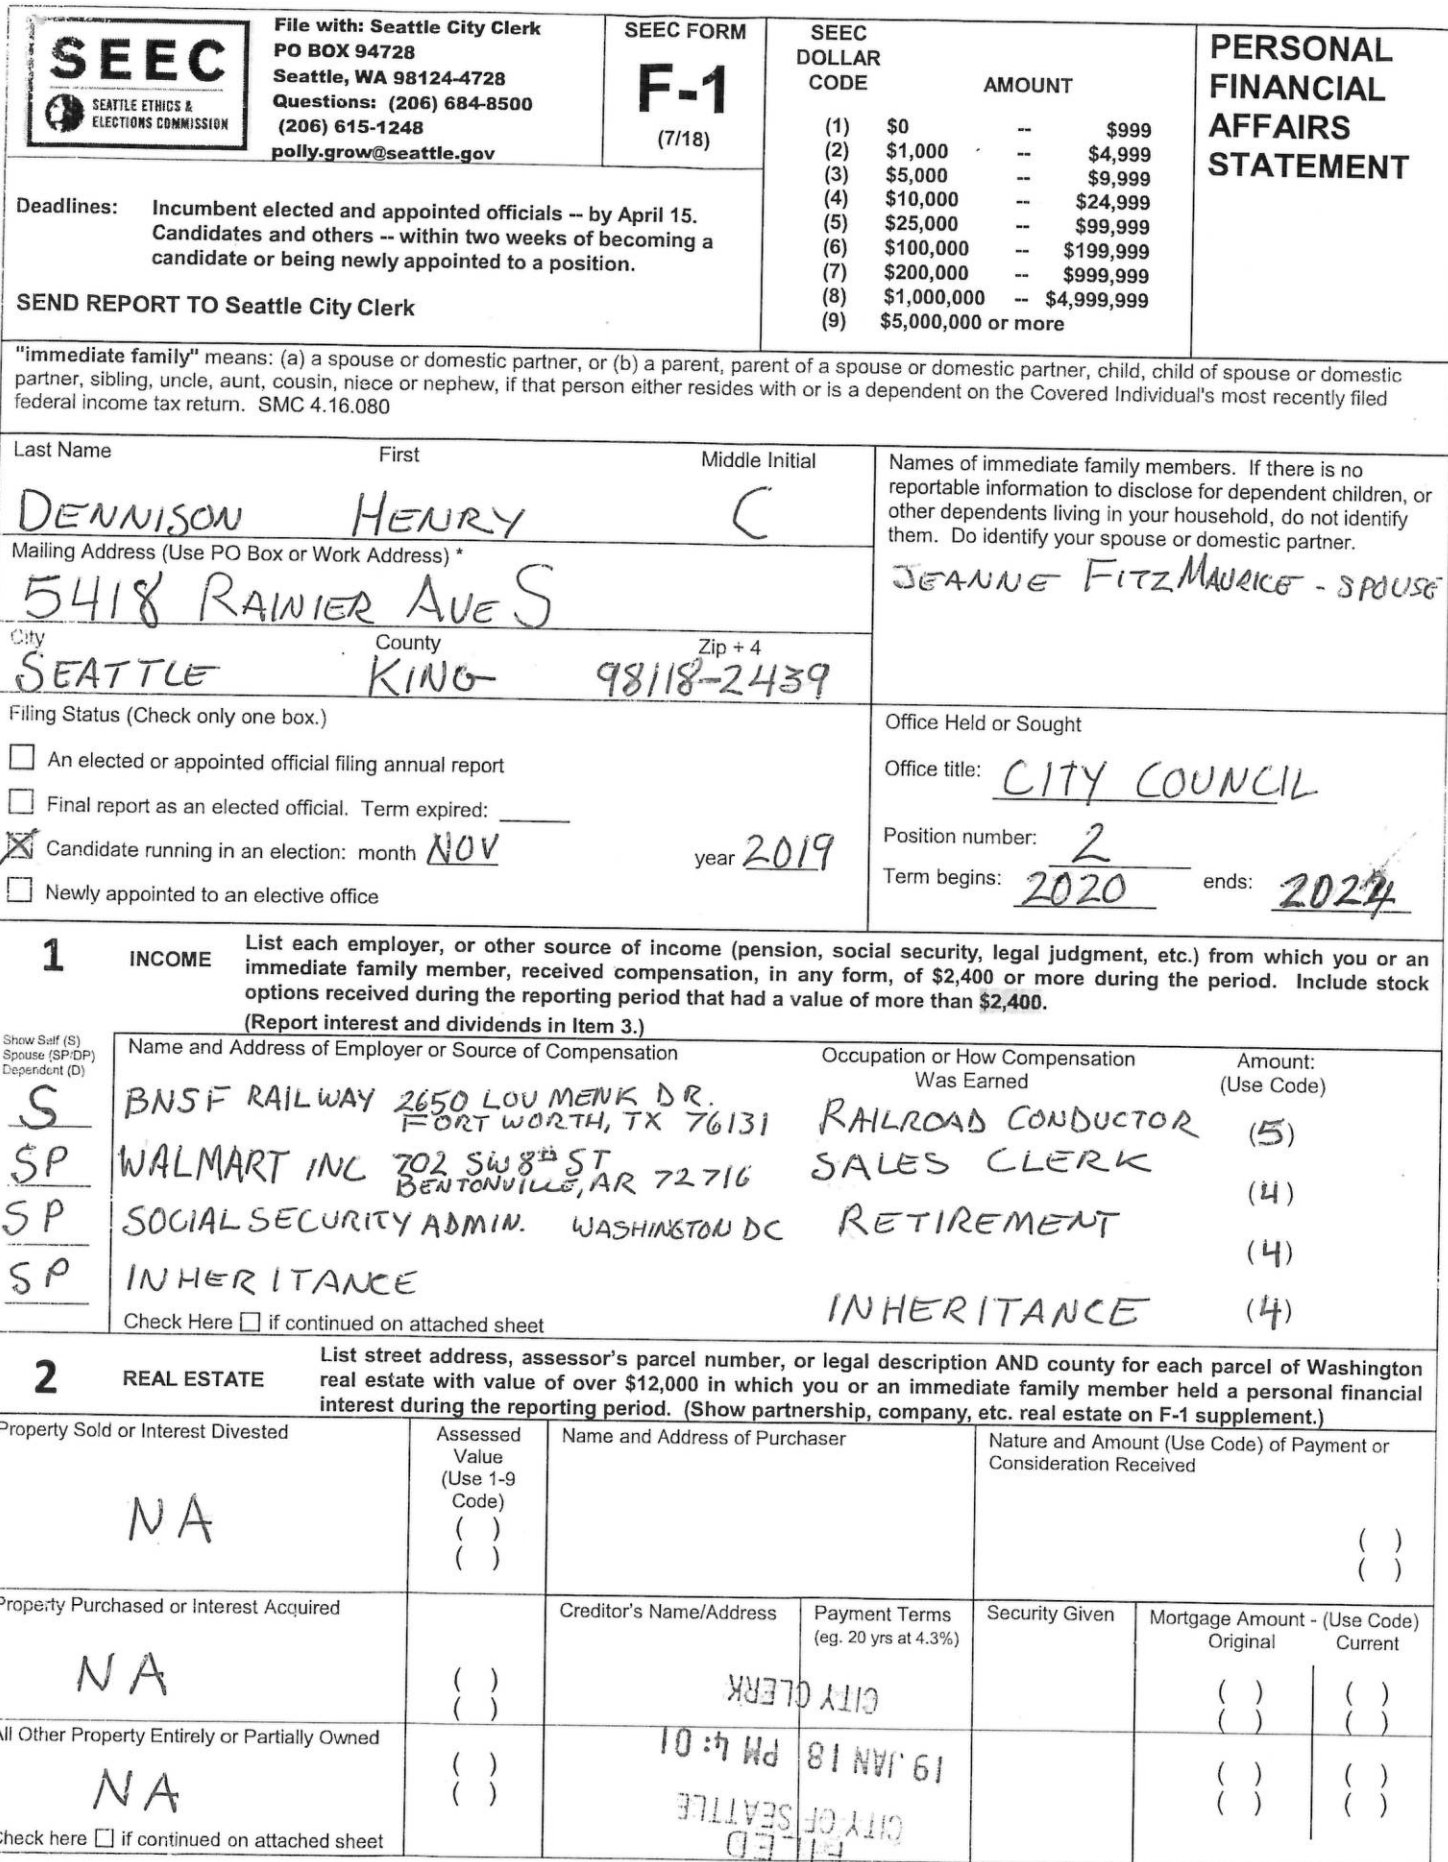 SEEC
SEATTLE ETHICS &
ELECTIONS COMMISSION
File with: Seattle City Clerk
PO BOX 94728
Seattle, WA 98124-4728
Questions: (206) 684-8500
(206) 615-1248
polly.grow@seattle.gov
SEEC FORM
F-1
(7/18)
SEEC
DOLLAR
CODE AMOUNT
(1) $0 -- $999
(2) $1,000 -- $4,999
(3) $5,000 -- $9,999
(4) $10,000 -- $24,999
(5) $25,000 -- $99,999
(6) $100,000 -- $199,999
(7) $200,000 -- $999,999
(8) $1,000,000 -- $4,999,999
(9) $5,000,000 or more
PERSONAL
FINANCIAL
AFFAIRS
STATEMENT
Deadlines: Incumbent elected and appointed officials -- by April 15.
Candidates and others -- within two weeks of becoming a
candidate or being newly appointed to a position.
SEND REPORT TO Seattle City Clerk
"immediate family" means: (a) a spouse or domestic partner, or (b) a parent, parent of a spouse or domestic partner, child, child of spouse or domestic
partner, sibling, uncle, aunt, cousin, niece or nephew, if that person either resides with or is a dependent on the Covered Individual's most recently filed
federal income tax return. SMC 4.16.080
Last Name First Middle Initial
DENNISON HENRY C
Mailing Address (Use PO Box or Work Address) *
5418 RAINIER AVE S
City County Zip + 4
SEATTLE KING 98118-2439
Names of immediate family members. If there is no
reportable information to disclose for dependent children, or
other dependents living in your household, do not identify
them. Do identify your spouse or domestic partner.
JEANNE FITZMAURICE - SPOUSE
Filing Status (Check only one box.)
An elected or appointed official filing annual report
Final report as an elected official. Term expired:
Candidate running in an election: month NOV year 2019
Newly appointed to an elective office
Office Held or Sought
Office title: CITY COUNCIL
Position number: 2
Term begins: 2020 ends: 2024
1 INCOME List each employer, or other source of income (pension, social security, legal judgment, etc.) from which you or an
immediate family member, received compensation, in any form, of $2,400 or more during the period. Include stock
options received during the reporting period that had a value of more than $2,400.
(Report interest and dividends in Item 3.)
Show Self (S)
Spouse (SP/DP)
Dependent (D)
Name and Address of Employer or Source of Compensation
Occupation or How Compensation
Was Earned
Amount:
(Use Code)
S BNSF RAILWAY 2650 LOU MENK DR.
FORT WORTH, TX 76131 RAILROAD CONDUCTOR (5)
SP WALMART INC 702 SW 8th ST
BENTONVILLE, AR 72716 SALES CLERK (4)
SP SOCIAL SECURITY ADMIN. WASHINGTON DC RETIREMENT (4)
SP INHERITANCE INHERITANCE (4)
Check Here if continued on attached sheet
2 REAL ESTATE List street address, assessor's parcel number, or legal description AND county for each parcel of Washington
real estate with value of over $12,000 in which you or an immediate family member held a personal financial
interest during the reporting period. (Show partnership, company, etc. real estate on F-1 supplement.)
Property Sold or Interest Divested
NA
Assessed
Value
(Use 1-9
Code)
( )
( )
Name and Address of Purchaser
Nature and Amount (Use Code) of Payment or
Consideration Received
( )
( )
Property Purchased or Interest Acquired
NA
( )
( )
Creditor's Name/Address
Payment Terms
(eg. 20 yrs at 4.3%)
Security Given
Mortgage Amount - (Use Code)
Original Current
( ) ( )
( ) ( )
All Other Property Entirely or Partially Owned
NA
( )
( )
( ) ( )
( ) ( )
Check here if continued on attached sheet
FILED
CITY OF SEATTLE
19 JAN 18 PM 4:01
CITY CLERK